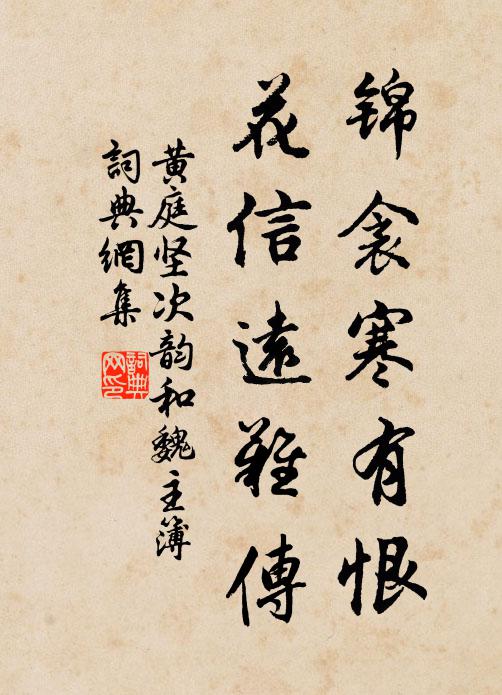 锦衾寒有恨
花信遠難傳
黄庭坚次韵和魏主簿
詞典網集
詞典网印